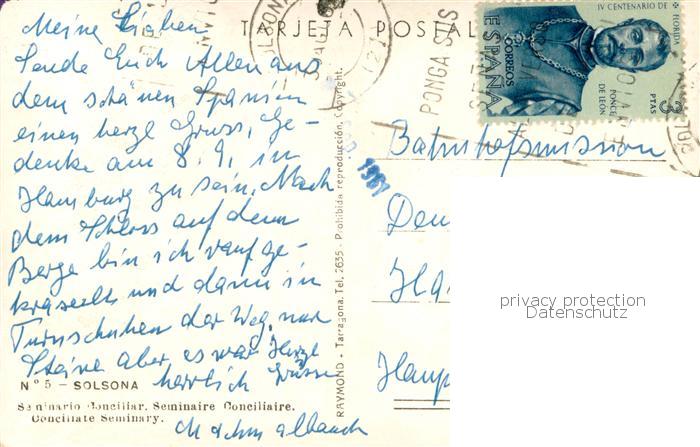 TARJETA POSTAL
Meine Lieben
Sende Euch Allen aus
dem schönen Spanien
einen herzl Gruss, Ge-
denke am 8. 9. in
Hamburg zu sein. Nach
dem Schloss auf dem
Berge bin ich rauf ge-
kraxelt und dann in
Turnschuhen der Weg nur
Steine aber es war
herrlich Herzl Grüsse
Nº 5 - SOLSONA
Seminario Conciliar. Seminaire Conciliaire.
Conciliate Seminary.
RAYMOND - Tarragona. Tel. 2635 - Prohibida reproducción. Copyright.
SOLSONA
PONGA SUS
IV CENTENARIO DE FLORIDA
CORREOS
ESPAÑA
PONCE
DE LEÓN
3
PTAS
1981
Bahnhofsmission
privacy protection
Datenschutz